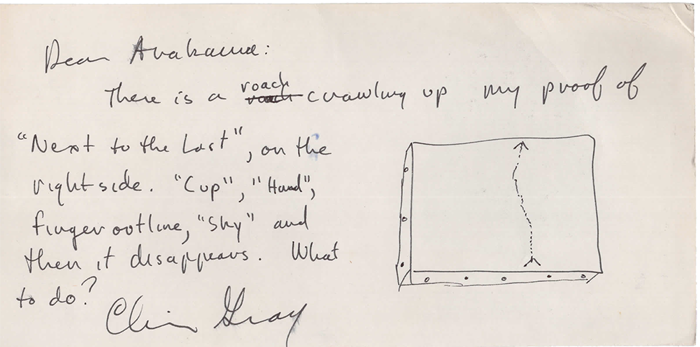 Dear Arakawa:
There is a roach crawling up my proof of
"Next to the Last", on the
right side. "Cup", "Hand",
finger outline, "Sky" and
then it disappears. What
to do?
Gray